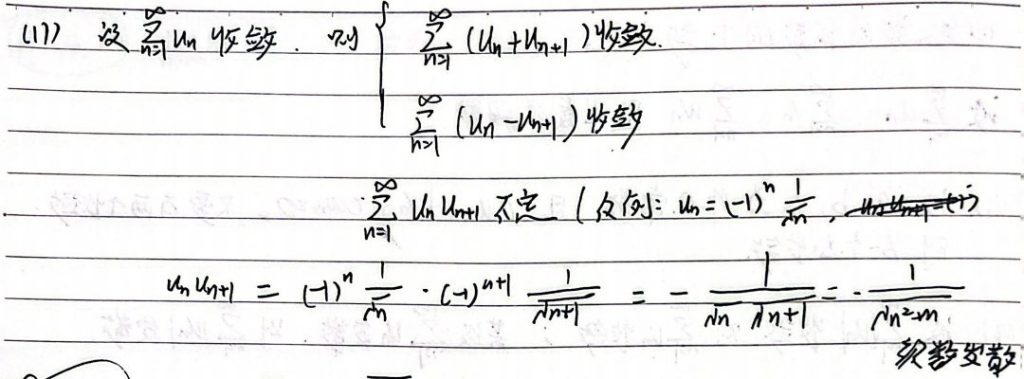 (17) 设 ∑_{n=1}^{∞} u_n 收敛. 则 { ∑_{n=1}^{∞} (u_n+u_{n+1}) 收敛.
∑_{n=1}^{∞} (u_n-u_{n+1}) 收敛
∑_{n=1}^{∞} u_n u_{n+1} 不定 (反例: u_n = (-1)^n 1/√n,
u_n u_{n+1} = (-1)^n 1/√n · (-1)^{n+1} 1/√(n+1) = - 1/(√n √(n+1)) = - 1/√(n²+n)
级数发散